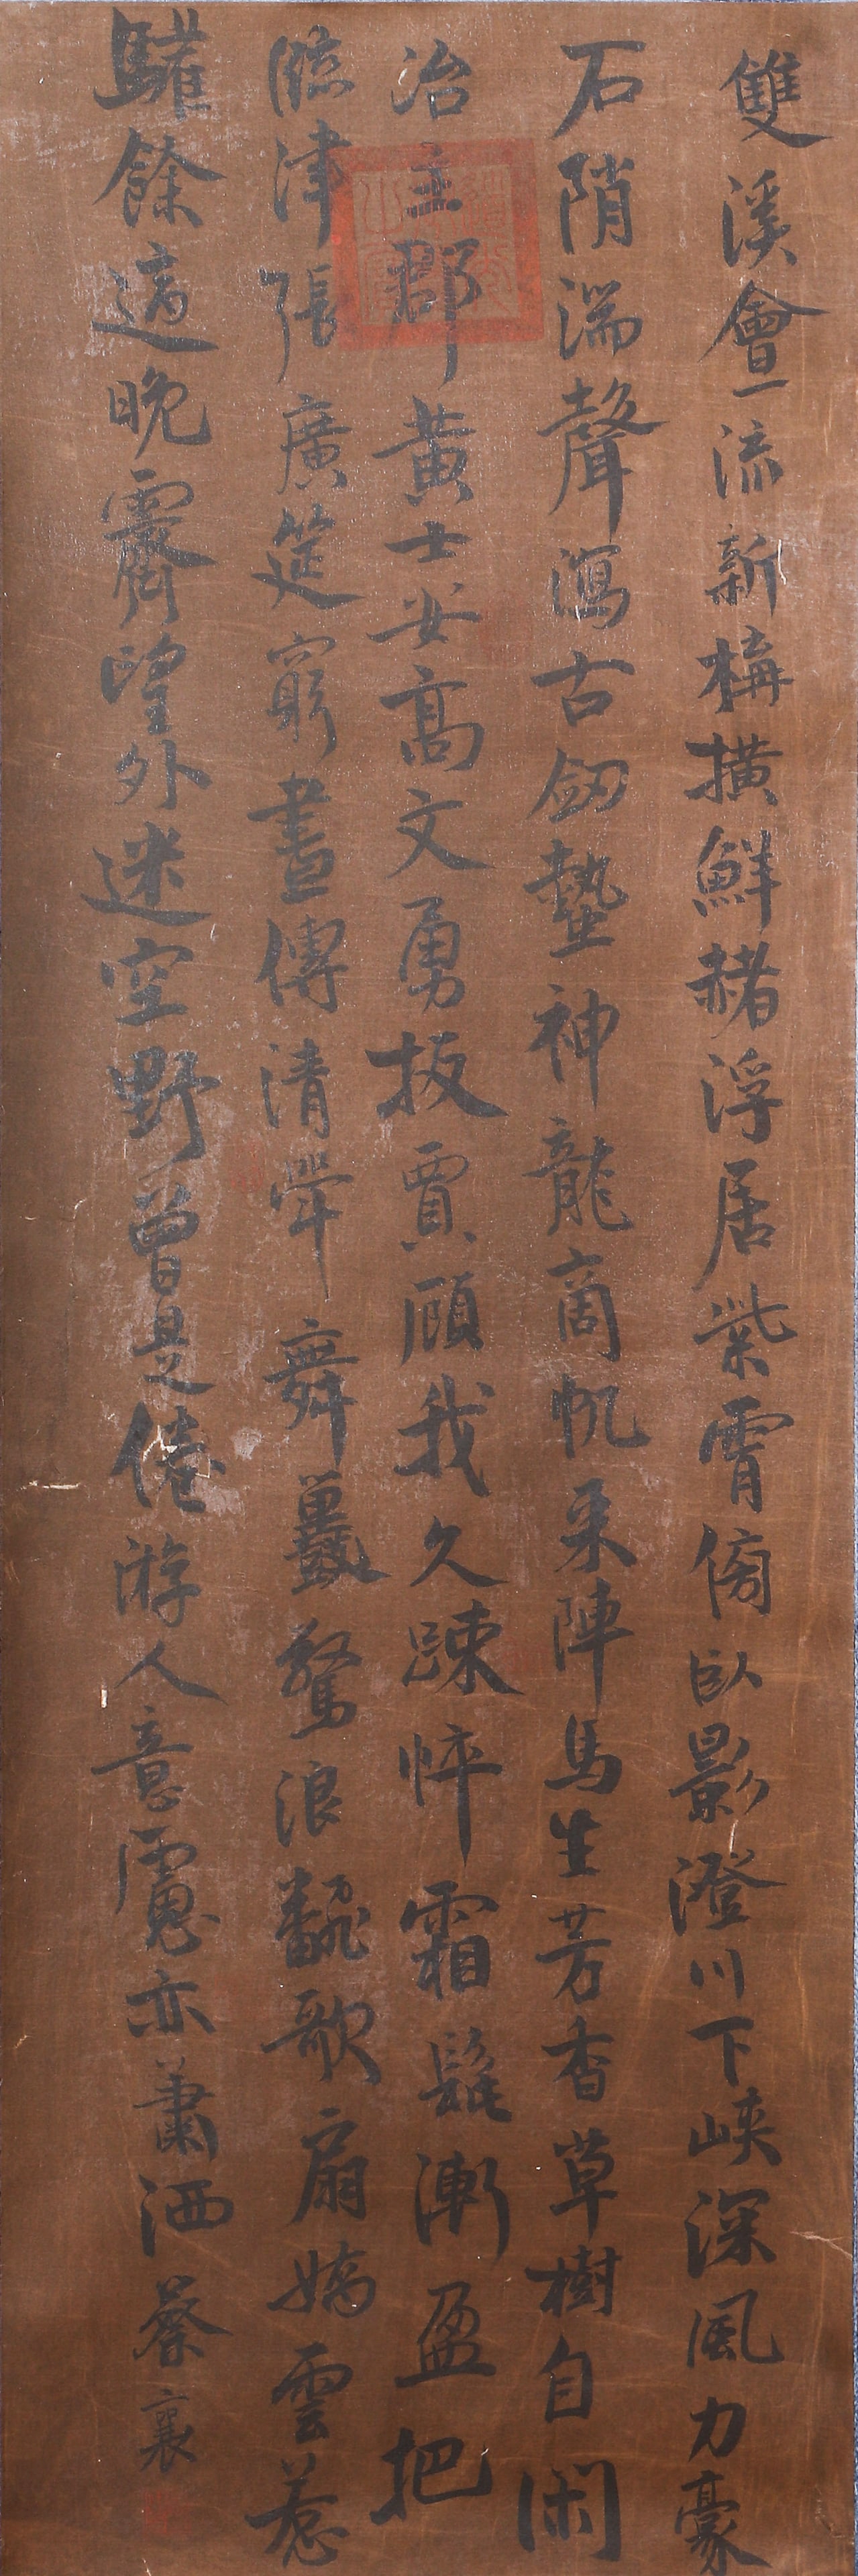 雙溪會一流新構橫鮮赭浮居紫霄傍臥影澄川下峽深風力豪
石階湍聲瀉古劒蟄神龍商帆來陣馬生芳香草樹自閑
冶主郡黃士安高文勇扳賈顧我久踈悴霜髩漸盈把
臨津張廣筵窮晝傳清斝舞鼉驚浪翻歌扇嬌雲惹
驩餘適晚霽望外迷空野曾是倦游人意慮亦蕭洒蔡襄